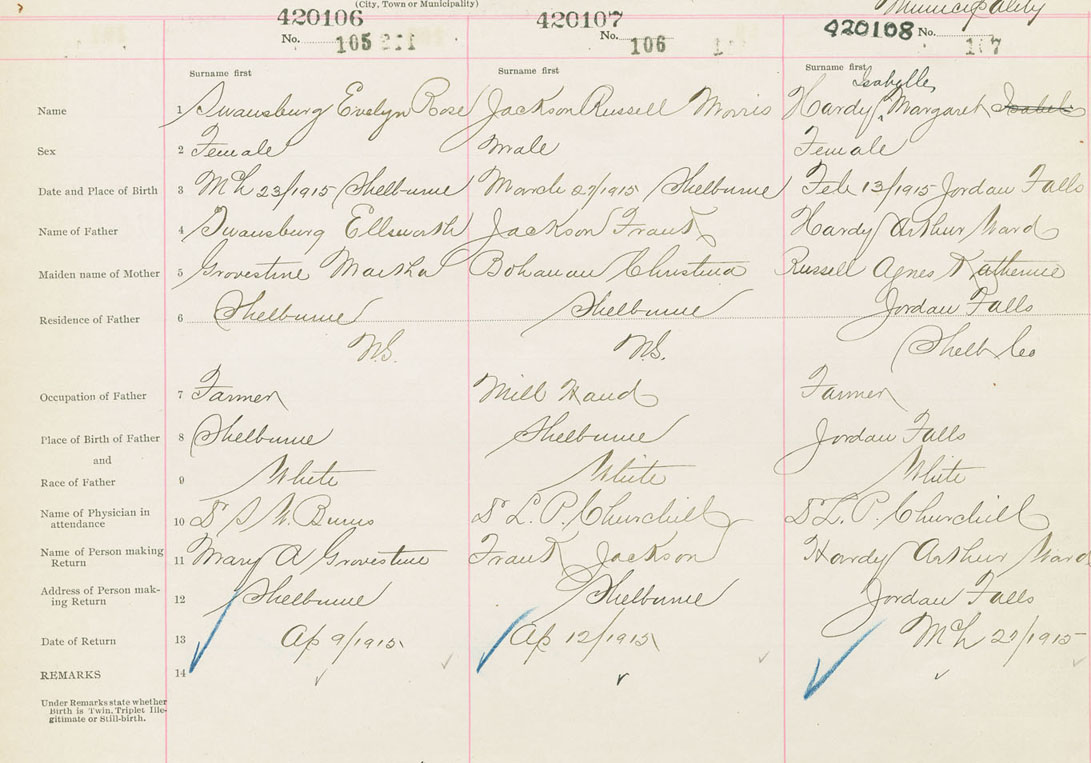 (City, Town or Municipality)
Municipality
420106 420107 420108
No. 105 No. 106 No. 107
Surname first Surname first Surname first
Isabelle
Name 1 Swansburg Evelyn Rose Jackson Russell Morris Hardy, Margaret Isabel
Sex 2 Female Male Female
Date and Place of Birth 3 Mch 23/1915 Shelburne March 27/1915 Shelburne Feb 13/1915 Jordan Falls
Name of Father 4 Swansburg Ellsworth Jackson Frank Hardy Arthur Ward
Maiden name of Mother 5 Grovestine Martha Bohanan Christina Russell Agnes Katherine
Residence of Father 6 Shelburne Shelburne Jordan Falls
N.S. N.S. Shelb Co
Occupation of Father 7 Farmer Mill Hand Farmer
Place of Birth of Father 8 Shelburne Shelburne Jordan Falls
and
Race of Father 9 White White White
Name of Physician in
attendance 10 Dr S W. Burns Dr L. P. Churchill Dr L. P. Churchill
Name of Person making
Return 11 Mary A Grovestine Frank Jackson Hardy Arthur Ward
Address of Person mak-
ing Return 12 Shelburne Shelburne Jordan Falls
Date of Return 13 Ap 9/1915 Ap 12/1915 Mch 27/1915
REMARKS 14
Under Remarks state whether
Birth is Twin, Triplet Ille-
gitimate or Still-birth.